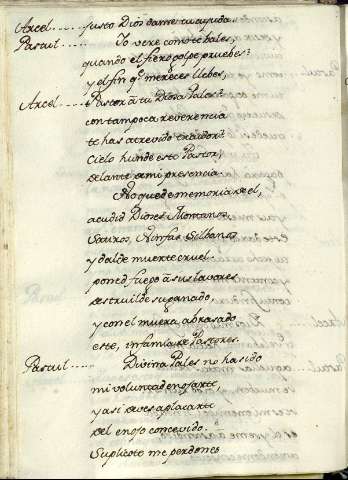 Arcel..... Justo Dios dame tu ayuda.
Pascul..... Yo vere como te bales,
quando el fiero golpe pruebes
y el fin q̃ mereces llebes,
Arcel..... Pastor à tu Diosa Pales?
con tampoca reverencia
te has atrevido traidor?
Cielo hunde este Pastor,
delante de mi presencia.
No quede memoria de el,
acudid Dioses Montanos
Sauros, Ninfas Silbanas
y dalde muerte cruel.
poned fuego à sus lavores
destruilde su ganado,
y con el muera abrasado
este, infamia de Pastores.
Pascul..... Divina Pales no ha sido
mi voluntad enojarte,
y asi deves aplacarte
del enojo concevido.
Suplicoto me perdones